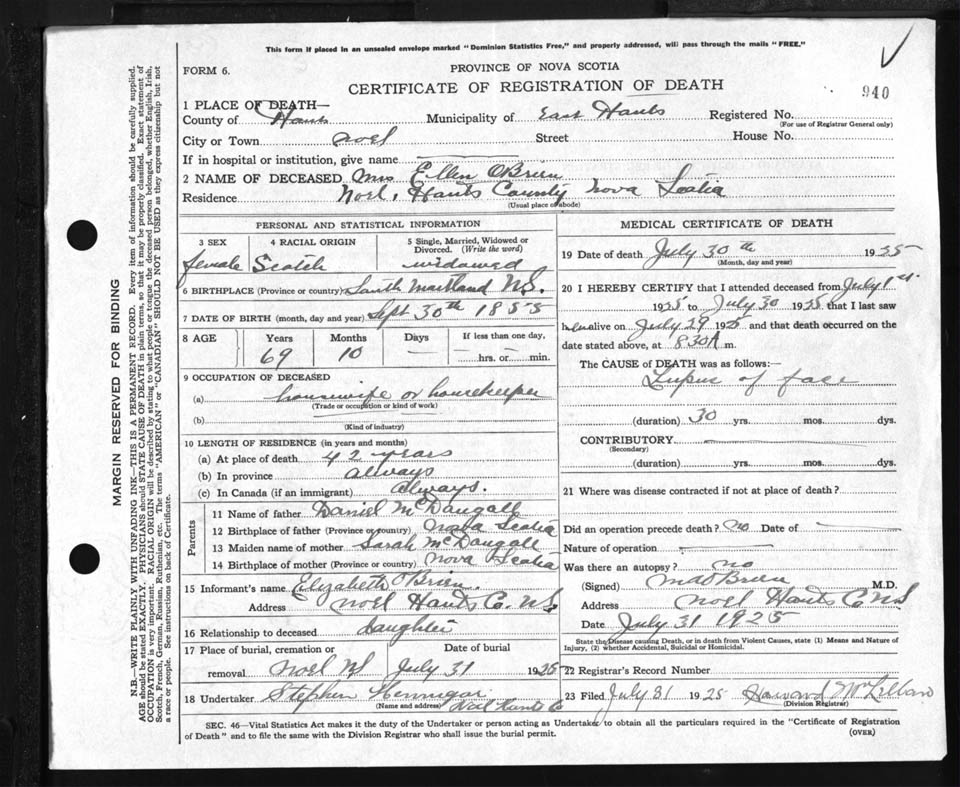 This form if placed in an unsealed envelope marked "Dominion Statistics Free," and properly addressed, will pass through the mails "FREE."
FORM 6.
PROVINCE OF NOVA SCOTIA
CERTIFICATE OF REGISTRATION OF DEATH
940
1 PLACE OF DEATH—
County of Hants Municipality of East Hants Registered No.
(For use of Registrar General only)
City or Town Noel Street House No.
If in hospital or institution, give name
2 NAME OF DECEASED Mrs Ellen O'Brien
Residence Noel, Hants County Nova Scotia
(Usual place of abode)
PERSONAL AND STATISTICAL INFORMATION
3 SEX 4 RACIAL ORIGIN 5 Single, Married, Widowed or Divorced. (Write the word)
female Scotch widowed
6 BIRTHPLACE (Province or country) South Maitland N.S.
7 DATE OF BIRTH (month, day and year) Sept 30th 1855
8 AGE Years Months Days If less than one day,
69 10 — hrs. or min.
9 OCCUPATION OF DECEASED
(a) housewife or housekeeper
(Trade or occupation or kind of work)
(b)
(Kind of industry)
10 LENGTH OF RESIDENCE (in years and months)
(a) At place of death 42 years
(b) In province always
(c) In Canada (if an immigrant) always.
Parents
11 Name of father Daniel McDougall
12 Birthplace of father (Province or country) Nova Scotia
13 Maiden name of mother Sarah McDougall
14 Birthplace of mother (Province or country) Nova Scotia
15 Informant's name Elizabeth O'Brien.
Address Noel Hants Co. N.S.
16 Relationship to deceased daughter
17 Place of burial, cremation or Date of burial
removal Noel NS July 31 1925
18 Undertaker Stephen Hennigar
(Name and address) Noel Hants Co
MEDICAL CERTIFICATE OF DEATH
19 Date of death July 30th 1925
(Month, day and year)
20 I HEREBY CERTIFY that I attended deceased from July 1st
1925 to July 30 1925 that I last saw
her alive on July 29 1925 and that death occurred on the
date stated above, at 830A m.
The CAUSE OF DEATH was as follows:—
Lupus of face
(duration) 30 yrs. mos. dys.
CONTRIBUTORY
(Secondary)
(duration) yrs. mos. dys.
21 Where was disease contracted if not at place of death?
Did an operation precede death? No Date of
Nature of operation
Was there an autopsy? no
(Signed) O'Brien M.D.
Address Noel Hants Co NS
Date July 31 1925
State the Disease causing Death, or in death from Violent Causes, state (1) Means and Nature of Injury, (2) whether Accidental, Suicidal or Homicidal.
22 Registrar's Record Number
23 Filed July 31 1925 Howard McLellan
(Division Registrar)
SEC. 46—Vital Statistics Act makes it the duty of the Undertaker or person acting as Undertaker to obtain all the particulars required in the "Certificate of Registration
of Death" and to file the same with the Division Registrar who shall issue the burial permit.
(OVER)
MARGIN RESERVED FOR BINDING
N.B.—WRITE PLAINLY WITH UNFADING INK—THIS IS A PERMANENT RECORD. Every item of information should be carefully supplied.
AGE should be stated EXACTLY. PHYSICIANS should STATE CAUSE OF DEATH in plain terms, so that it may be properly classified. Exact statement of
OCCUPATION is very important. RACIAL ORIGIN will be described by stating to what people or tongue the deceased person belonged, whether English, Irish,
Scotch, French, German, Russian, Ruthenian, etc. The terms "AMERICAN" or "CANADIAN" SHOULD NOT BE USED as they express citizenship but not
a race or people. See instructions on back of Certificate.